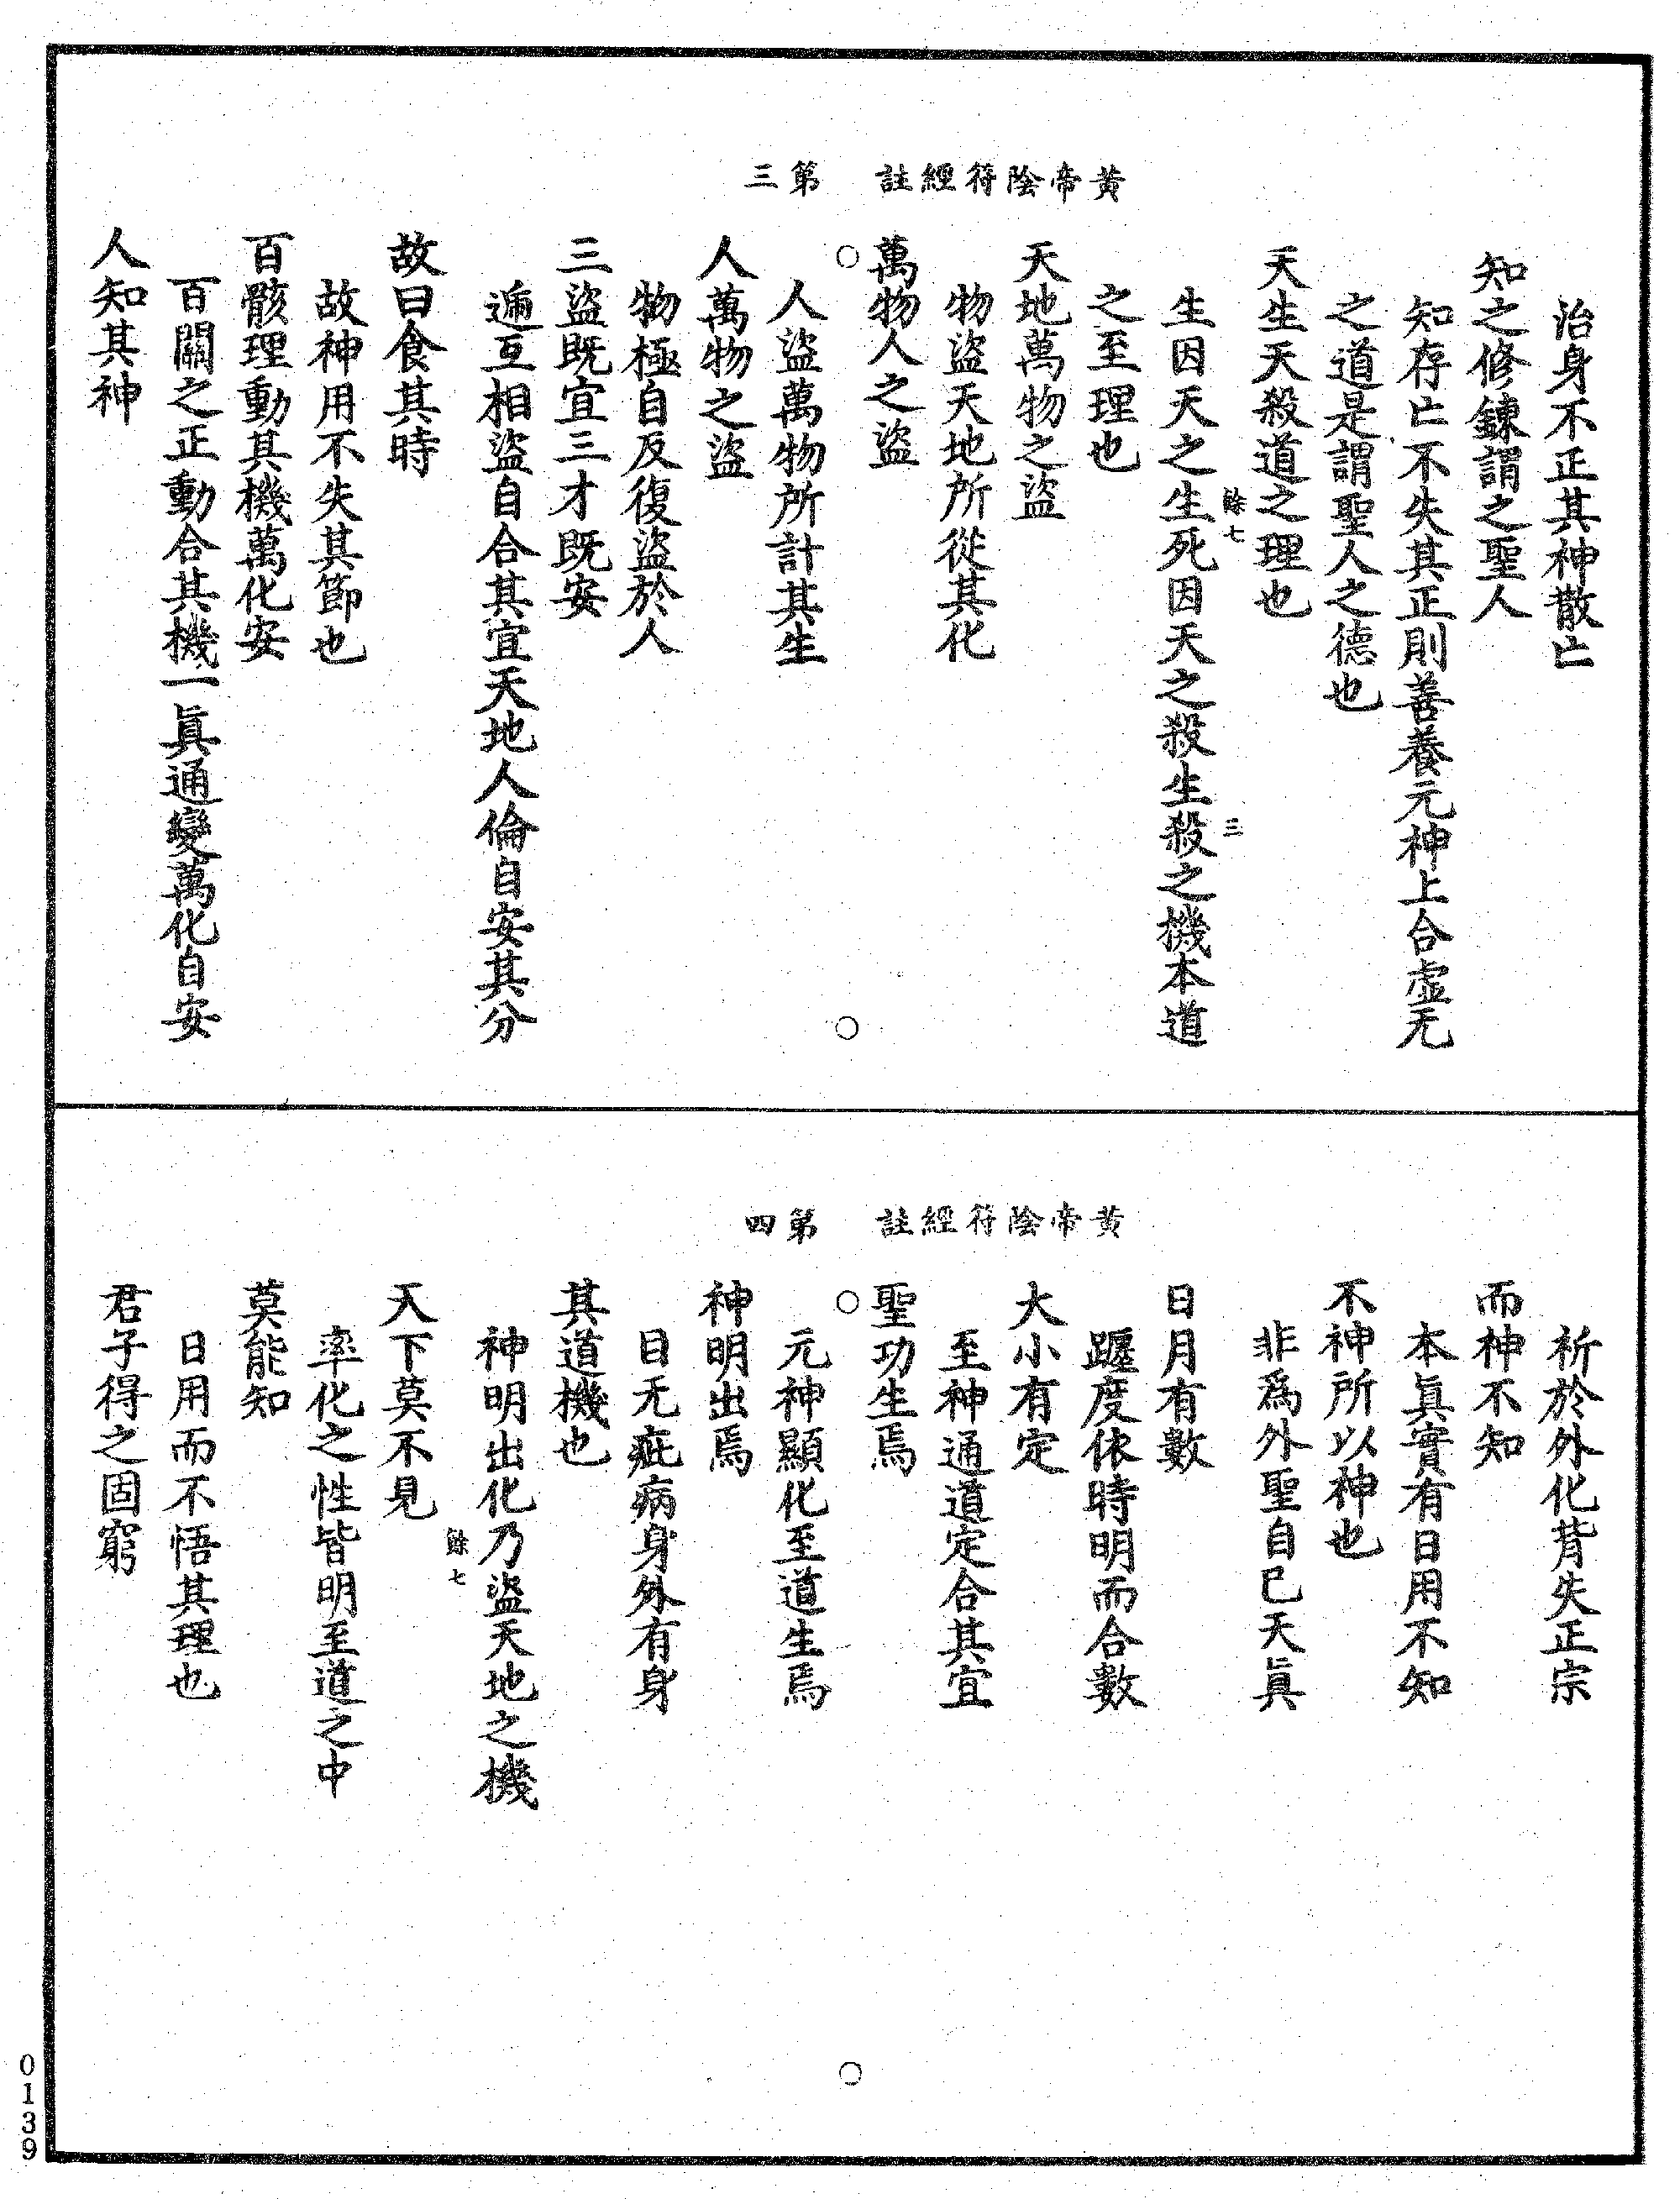 黃帝陰符經註　第三
治身不正其神散亡
知之修鍊謂之聖人
知存亡不失其正則善養元神上合虛无
之道是謂聖人之德也
天生天殺道之理也
餘七　三
生因天之生死因天之殺生殺之機本道
之至理也
天地萬物之盜
物盜天地所從其化
萬物人之盜
人盜萬物所計其生
人萬物之盜
物極自反復盜於人
三盜既宜三才既安
遞互相盜自合其宜天地人倫自安其分
故曰食其時
故神用不失其節也
百骸理動其機萬化安
百關之正動合其機一眞通變萬化自安
人知其神
黃帝陰符經註　第四
祈於外化背失正宗
而神不知
本眞實有日用不知
不神所以神也
非爲外聖自己天眞
日月有數
躔度依時明而合數
大小有定
至神通道定合其宜
聖功生焉
元神顯化至道生焉
神明出焉
目无疵病身外有身
其道機也
神明出化乃盜天地之機
餘七
天下莫不見
率化之性皆明至道之中
莫能知
日用而不悟其理也
君子得之固窮
0139